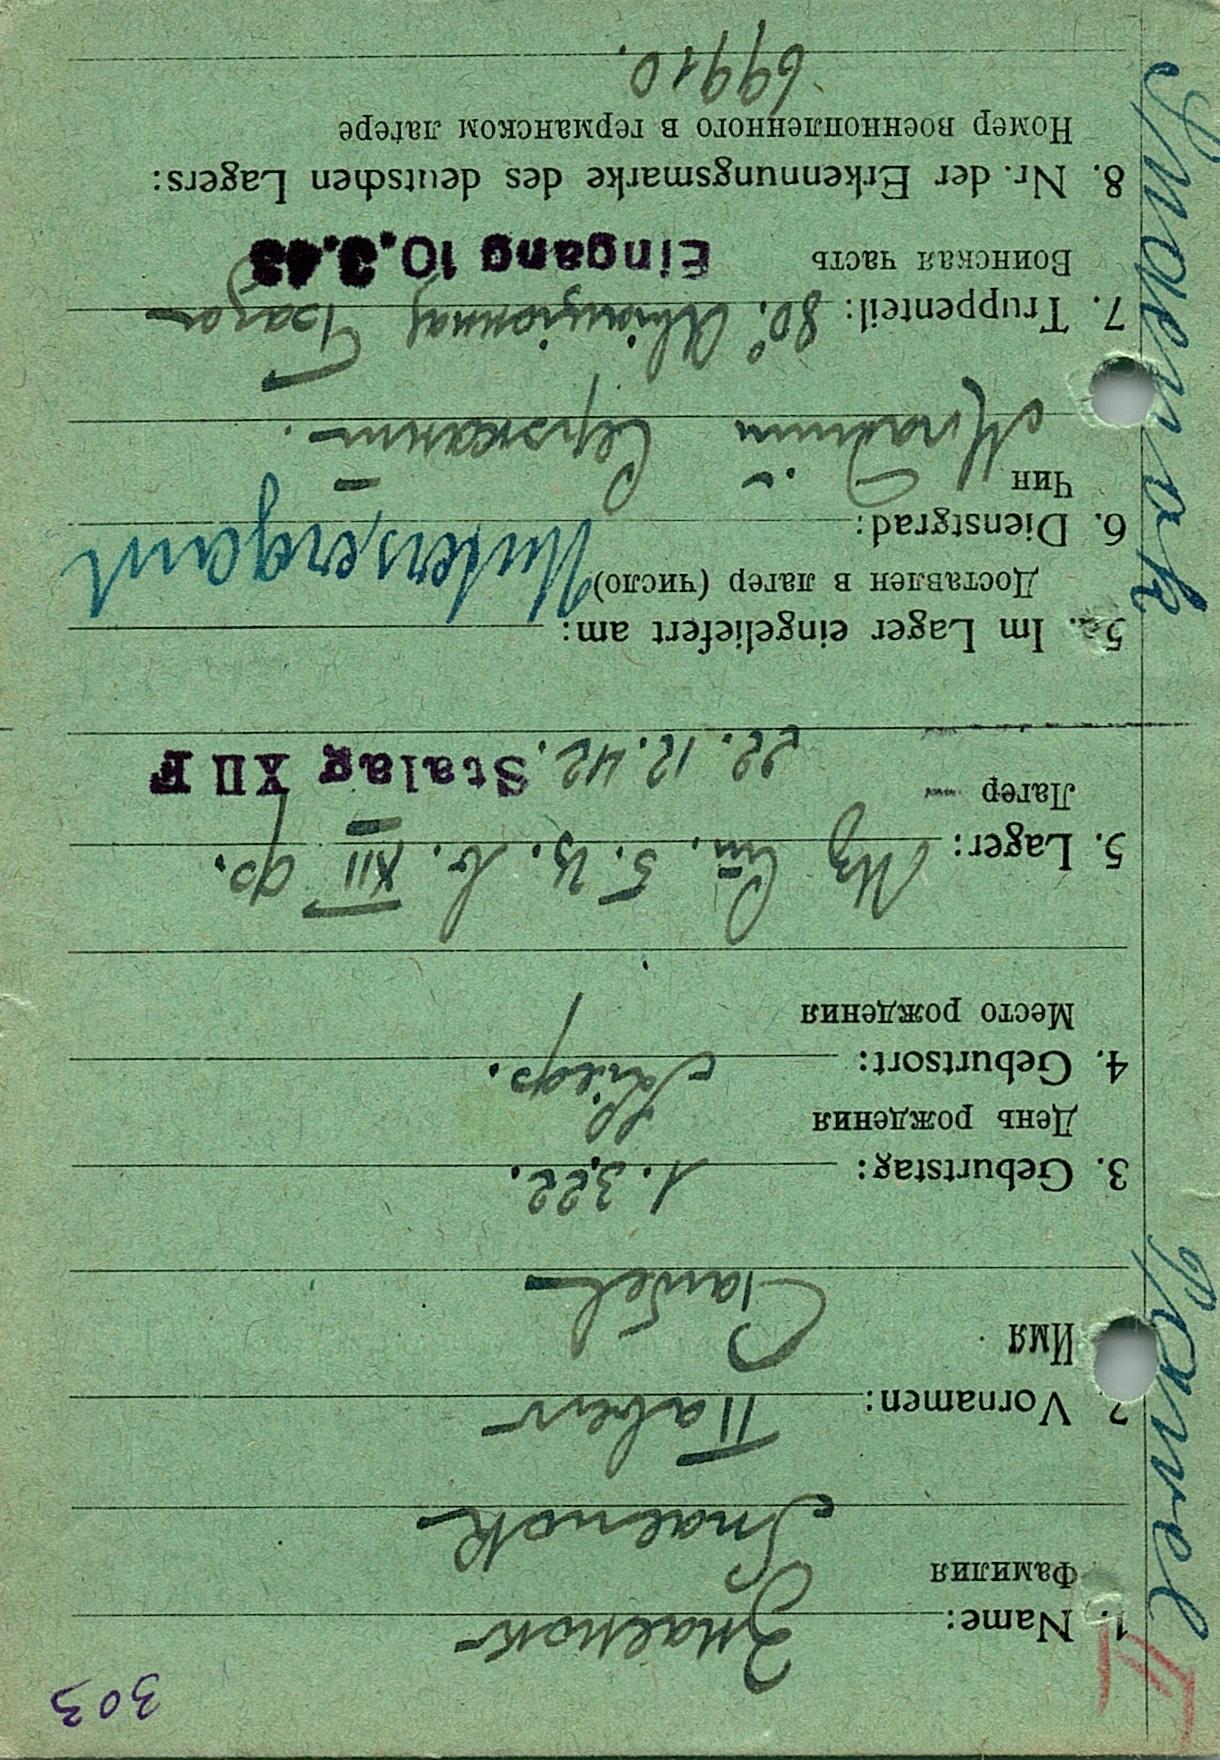 303
1. Name: Знаенок
Фамилия
Snaenok
2. Vornamen: Павел
Имя
Pawel
3. Geburtstag: 1. 3.22.
День рождения
4. Geburtsort:
Место рождения
5. Lager: Из Ст. 5. В. в. XII ф.
Лагер
22. 12. 42. Stalag XII F
5a. Im Lager eingeliefert am:
Доставлен в лагер (число)
6. Dienstgrad: Untersergant
Чин
Младший Сержант.
7. Truppenteil: 80. Авиационная База
Воинская часть Eingang 10.3.43
8. Nr. der Erkennungsmarke des deutschen Lagers:
Номер военнопленного в германском лагере
69910.
Pawel
Snaenok